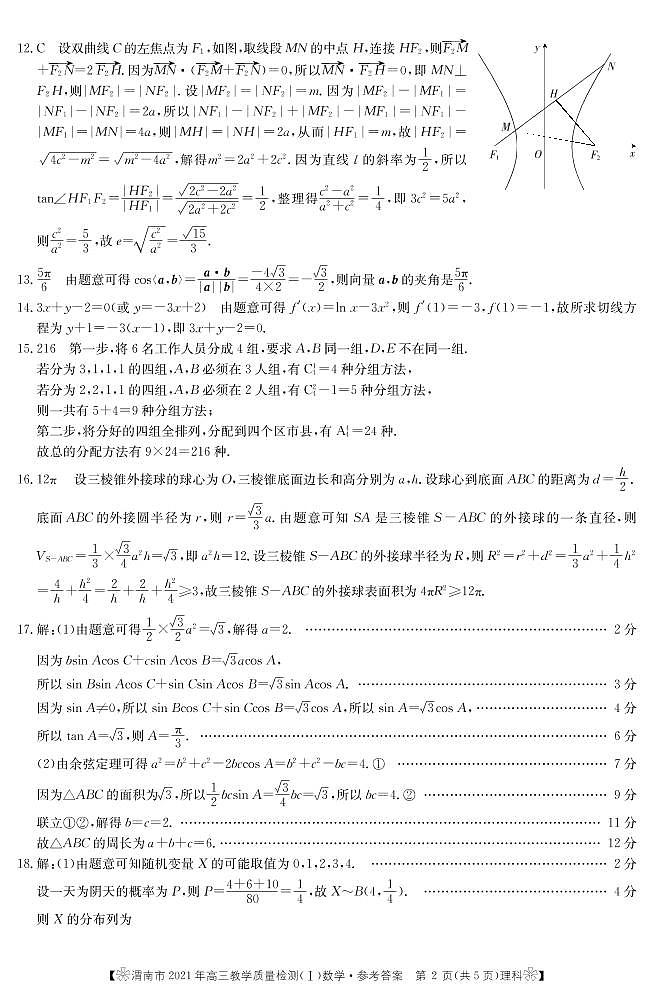 12. C 设双曲线 C 的左焦点为 F₁,如图,取线段 MN 的中点 H,连接 HF₂,则\overrightarrow{F₂M}
+\overrightarrow{F₂N}=2\overrightarrow{F₂H}.因为\overrightarrow{MN}·(\overrightarrow{F₂M}+\overrightarrow{F₂N})=0,所以\overrightarrow{MN}·\overrightarrow{F₂H}=0,即 MN⊥
F₂H,则|MF₂|=|NF₂|.设|MF₂|=|NF₂|=m.因为|MF₂|-|MF₁|=
|NF₁|-|NF₂|=2a,所以|NF₁|-|NF₂|+|MF₂|-|MF₁|=|NF₁|-
|MF₁|=|MN|=4a,则|MH|=|NH|=2a,从而|HF₁|=m,故|HF₂|=
√(4c²-m²)=√(m²-4a²),解得m²=2a²+2c².因为直线 l 的斜率为1/2,所以
tan∠HF₁F₂=|HF₂|/|HF₁|=√(2c²-2a²)/√(2a²+2c²)=1/2,整理得(c²-a²)/(a²+c²)=1/4,即 3c²=5a²,
则c²/a²=5/3,故 e=√(c²/a²)=√15/3.
y
N
H
M
F₁
O
F₂
x
13. 5π/6 由题意可得 cos⟨a,b⟩=a·b/(|a||b|)=-4√3/(4×2)=-√3/2,则向量 a,b 的夹角是5π/6.
14. 3x+y-2=0(或 y=-3x+2) 由题意可得 f′(x)=ln x-3x²,则 f′(1)=-3,f(1)=-1,故所求切线方
程为 y+1=-3(x-1),即 3x+y-2=0.
15. 216 第一步,将 6 名工作人员分成 4 组,要求 A,B 同一组,D,E 不在同一组.
若分为 3,1,1,1 的四组,A,B 必须在 3 人组,有 C₄¹=4 种分组方法,
若分为 2,2,1,1 的四组,A,B 必须在 2 人组,有 C₄²-1=5 种分组方法,
则一共有 5+4=9 种分组方法;
第二步,将分好的四组全排列,分配到四个区市县,有 A₄⁴=24 种.
故总的分配方法有 9×24=216 种.
16. 12π 设三棱锥外接球的球心为 O,三棱锥底面边长和高分别为 a,h.设球心到底面 ABC 的距离为 d=h/2.
底面 ABC 的外接圆半径为 r,则 r=√3/3 a.由题意可知 SA 是三棱锥 S-ABC 的外接球的一条直径,则
V_{S-ABC}=1/3×√3/4 a²h=√3,即 a²h=12.设三棱锥 S-ABC 的外接球半径为 R,则 R²=r²+d²=1/3 a²+1/4 h²
=4/h+h²/4=2/h+2/h+h²/4≥3,故三棱锥 S-ABC 的外接球表面积为 4πR²≥12π.
17. 解:(1)由题意可得1/2×√3/2 a²=√3,解得 a=2. …… 2 分
因为 bsin Acos C+csin Acos B=√3acos A,
所以 sin Bsin Acos C+sin Csin Acos B=√3sin Acos A. …… 3 分
因为 sin A≠0,所以 sin Bcos C+sin Ccos B=√3cos A,所以 sin A=√3cos A, …… 4 分
所以 tan A=√3,则 A=π/3. …… 6 分
(2)由余弦定理可得 a²=b²+c²-2bccos A=b²+c²-bc=4.① …… 7 分
因为△ABC 的面积为√3,所以1/2 bcsin A=√3/4 bc=√3,所以 bc=4.② …… 9 分
联立①②,解得 b=c=2. …… 11 分
故△ABC 的周长为 a+b+c=6. …… 12 分
18. 解:(1)由题意可知随机变量 X 的可能取值为 0,1,2,3,4. …… 2 分
设一天为阴天的概率为 P,则 P=(4+6+10)/80=1/4,故 X~B(4,1/4). …… 4 分
则 X 的分布列为
【渭南市 2021 年高三教学质量检测(Ⅰ)数学·参考答案 第 2 页(共 5 页)理科】